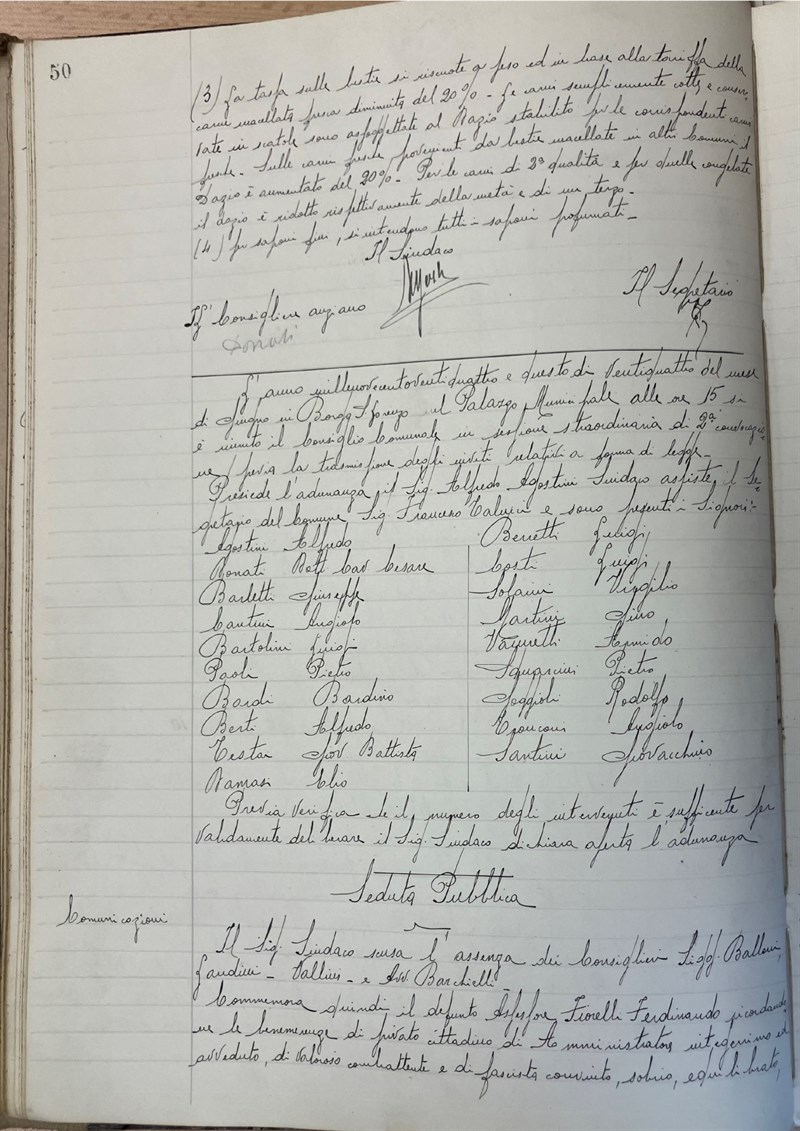 50
(3) La tassa sulle bestie si riscuote a peso ed in base alla tariffa della
carne macellata fresca diminuita del 20% - Le carni semplicemente cotte, e conser-
vate in scatole sono assoggettate al Dazio stabilito per le corrispondenti carni
fresche - Sulle carni fresche provenienti da bestie macellate in altri Comuni il
Dazio è aumentato del 20% - Per le carni di 2ª qualità e per quelle congelate
il dazio è ridotto rispettivamente della metà e di un terzo -
(4) Per saponi fini, si intendono tutti i saponi profumati -
Il Sindaco
Il Segretario
Il Consigliere anziano
Donati
L'anno millenovecentoventiquattro e questo dì Ventiquattro del mese
di Giugno in Borgo S. Lorenzo nel Palazzo Municipale alle ore 15 si
è riunito il Consiglio Comunale in sessione straordinaria di 2ª convocazio-
ne, previa la trasmissione degli inviti relativi a forma di legge -
Presiede l'adunanza, il Sig. Alfredo Agostini Sindaco assiste, il Se-
gretario del Comune, Sig. Francesco e sono presenti i Signori: -
Agostini Alfredo
Donati Dott. Cav Cesare
Barletti Giuseppe
Cantini Angiolo
Bartolini Luigi
Paoli Pietro
Bardi Bardino
Berti Alfredo
Testai Giov Battista
Clio
Berretti Luigi
Costi Luigi
Solaini Virgilio
Martini Gino
Armido
Squarcini Pietro
Poggioli Rodolfo
Tronconi Angiolo
Santini Giovacchino
Previa verifica che il numero degli intervenuti è sufficente per
validamente deliberare il Sig. Sindaco dichiara aperta l'adunanza
Seduta Pubblica
Comunicazioni
Il Sig. Sindaco scusa l'assenza dei Consiglieri Sigg. Balloni,
Gaudini - Vallini - e Avv Barchielli -
Commemora quindi il defunto Assessore, Fiorelli Ferdinando ricordando-
ne le benemerenze di privato cittadino di Amministratore integerrimo ed
avveduto, di valoroso combattente e di fascista convinto, sobrio, equilibrato,